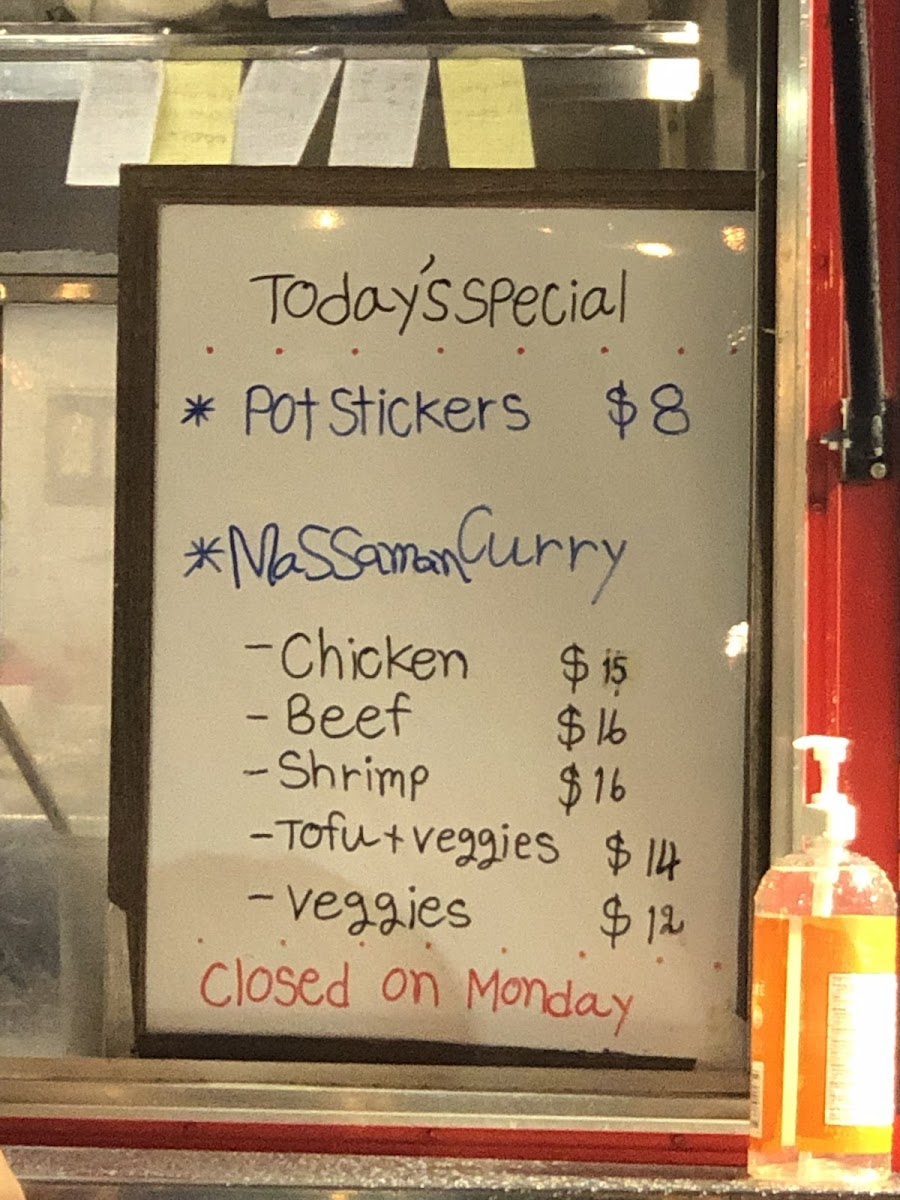 Today's Special
* Pot Stickers $8
* Massaman Curry
- Chicken $15
- Beef $16
- Shrimp $16
- Tofu + veggies $14
- veggies $12
Closed on Monday